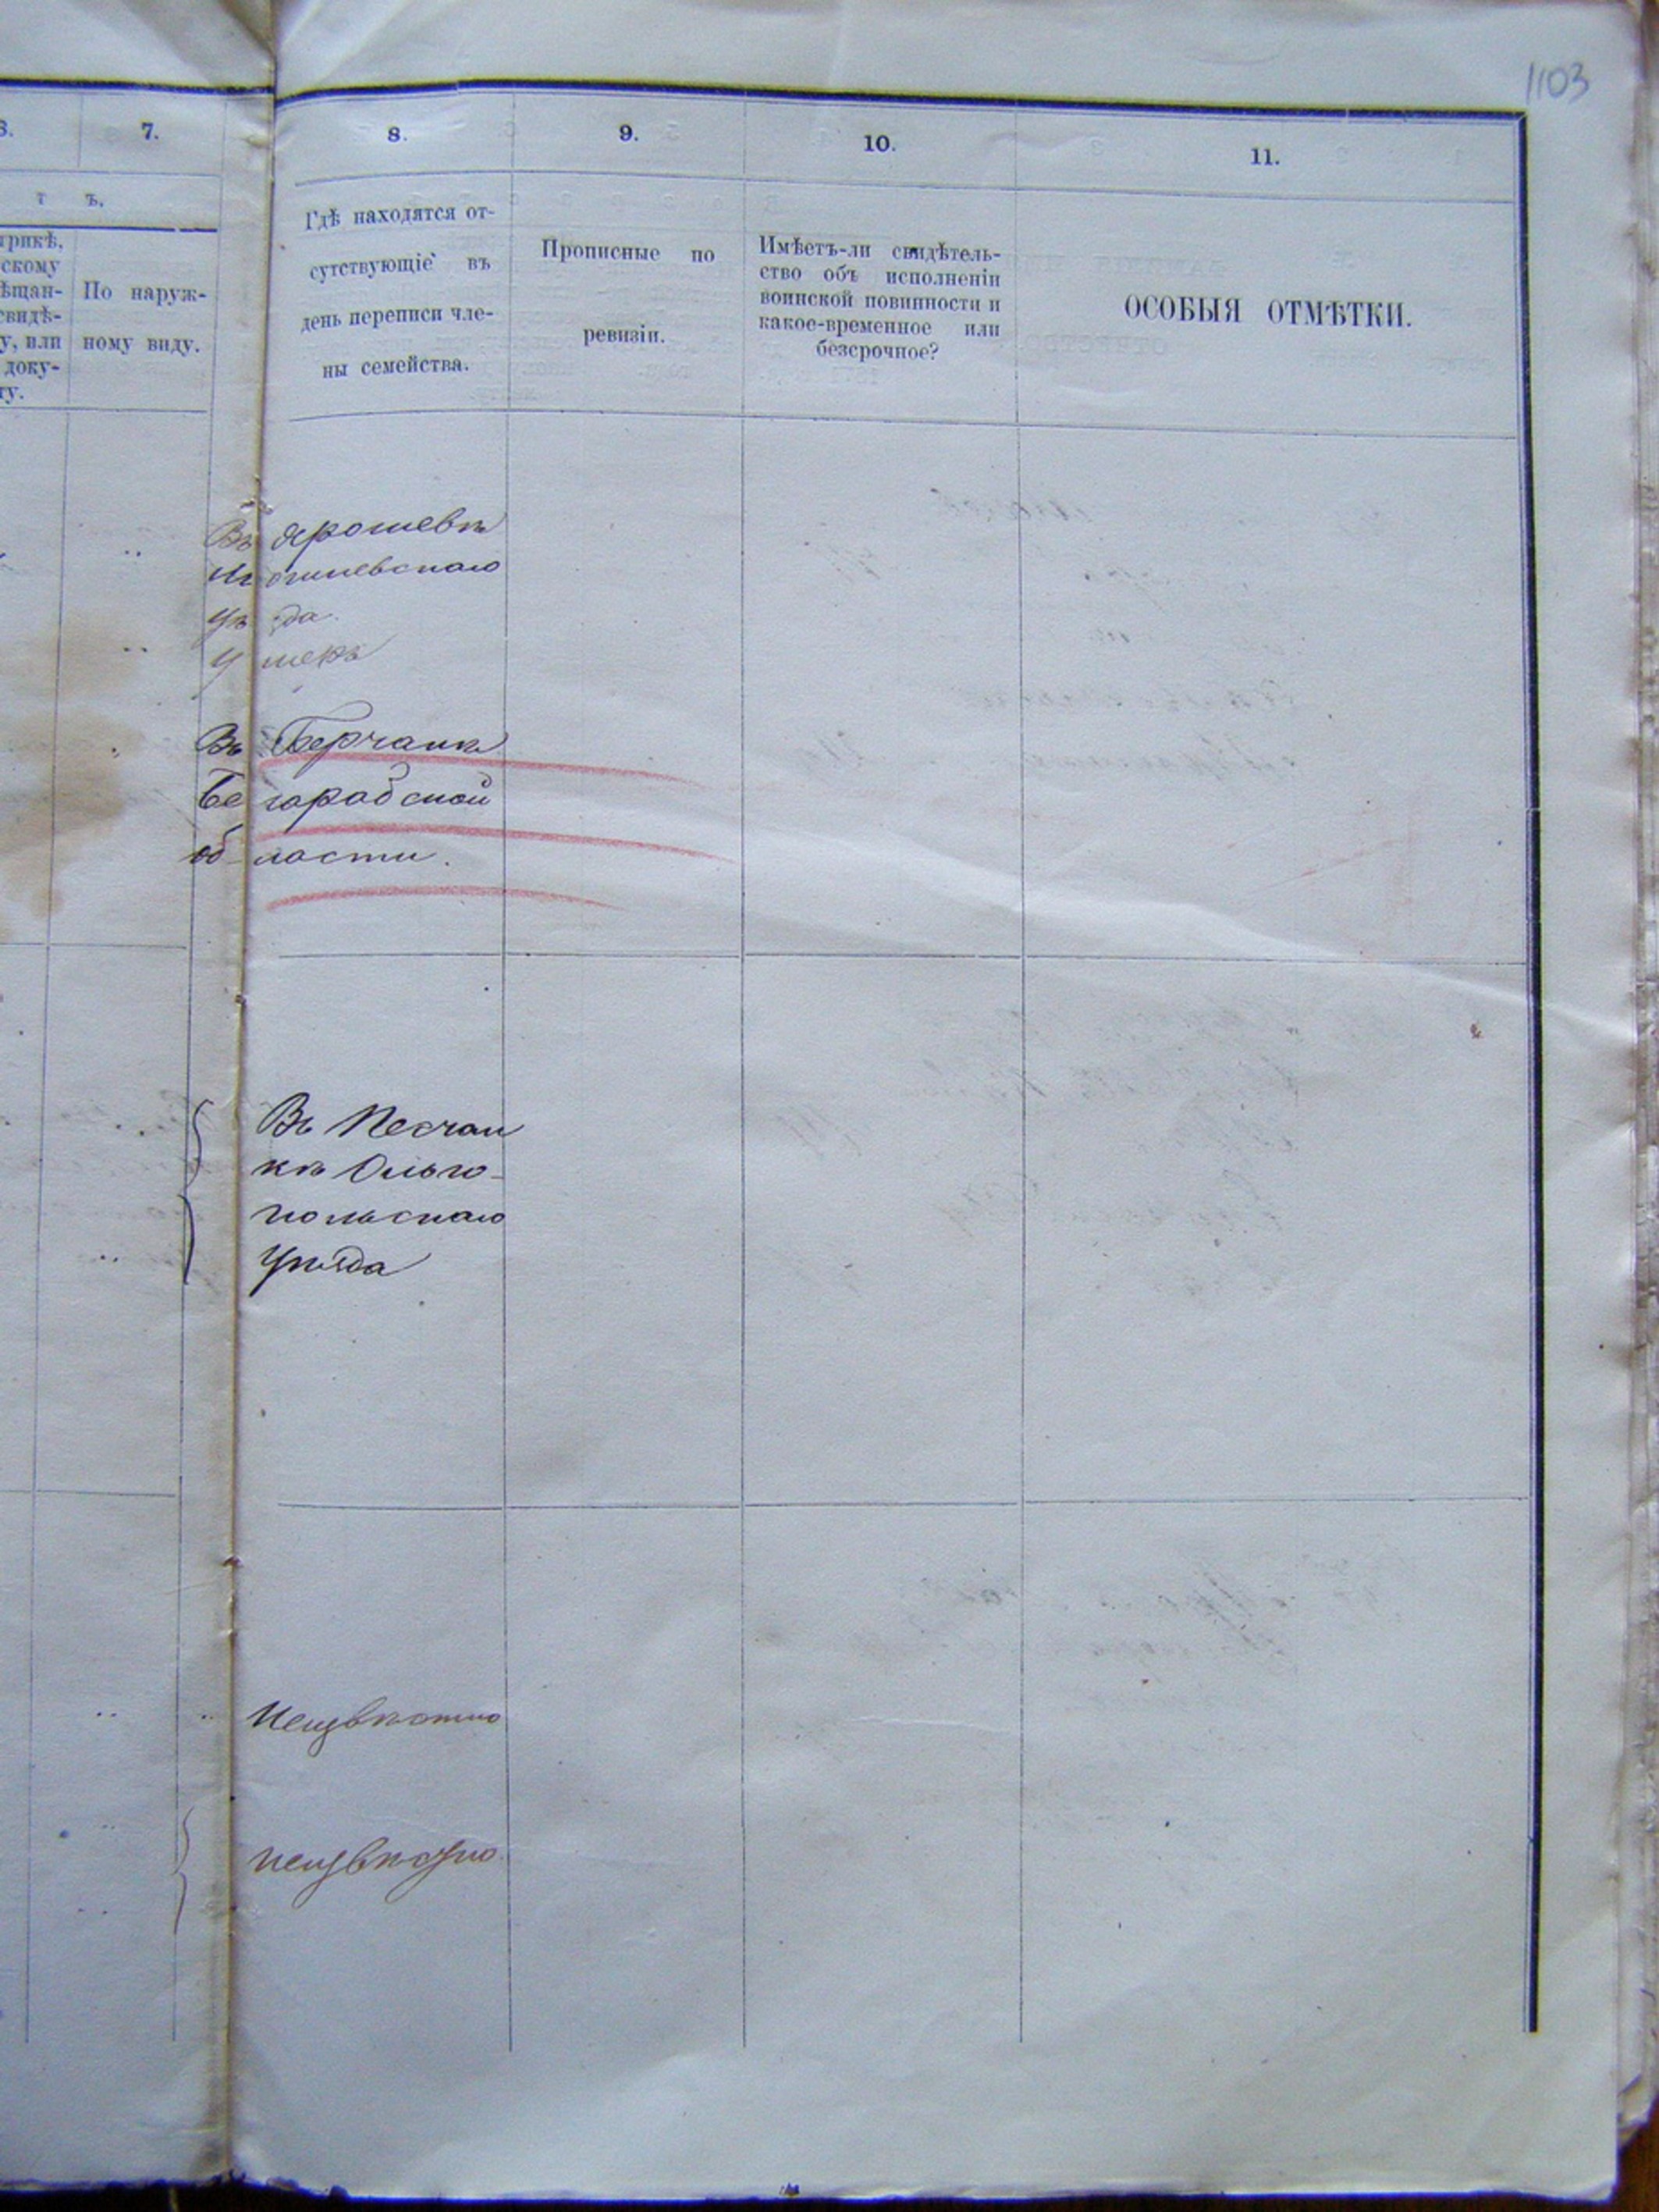 1103
7.
т ъ.
рикѣ,
скому
ѣщан-
свидѣ-
у, или
доку-
ту.
По наруж-
ному виду.
8.
Гдѣ находятся от-
сутствующіе въ
день переписи чле-
ны семейства.
9.
Прописные по
ревизіи.
10.
Имѣетъ-ли свидѣтель-
ство объ исполненіи
воинской повинности и
какое-временное или
безсрочное?
11.
ОСОБЫЯ ОТМѢТКИ.
Въ Ярошевкѣ
уѣзда.
Умеръ
Въ
области.
Въ Песчан
кѣ Ольго-
польскаго
Уѣзда
Неизвѣстно
неизвѣстно